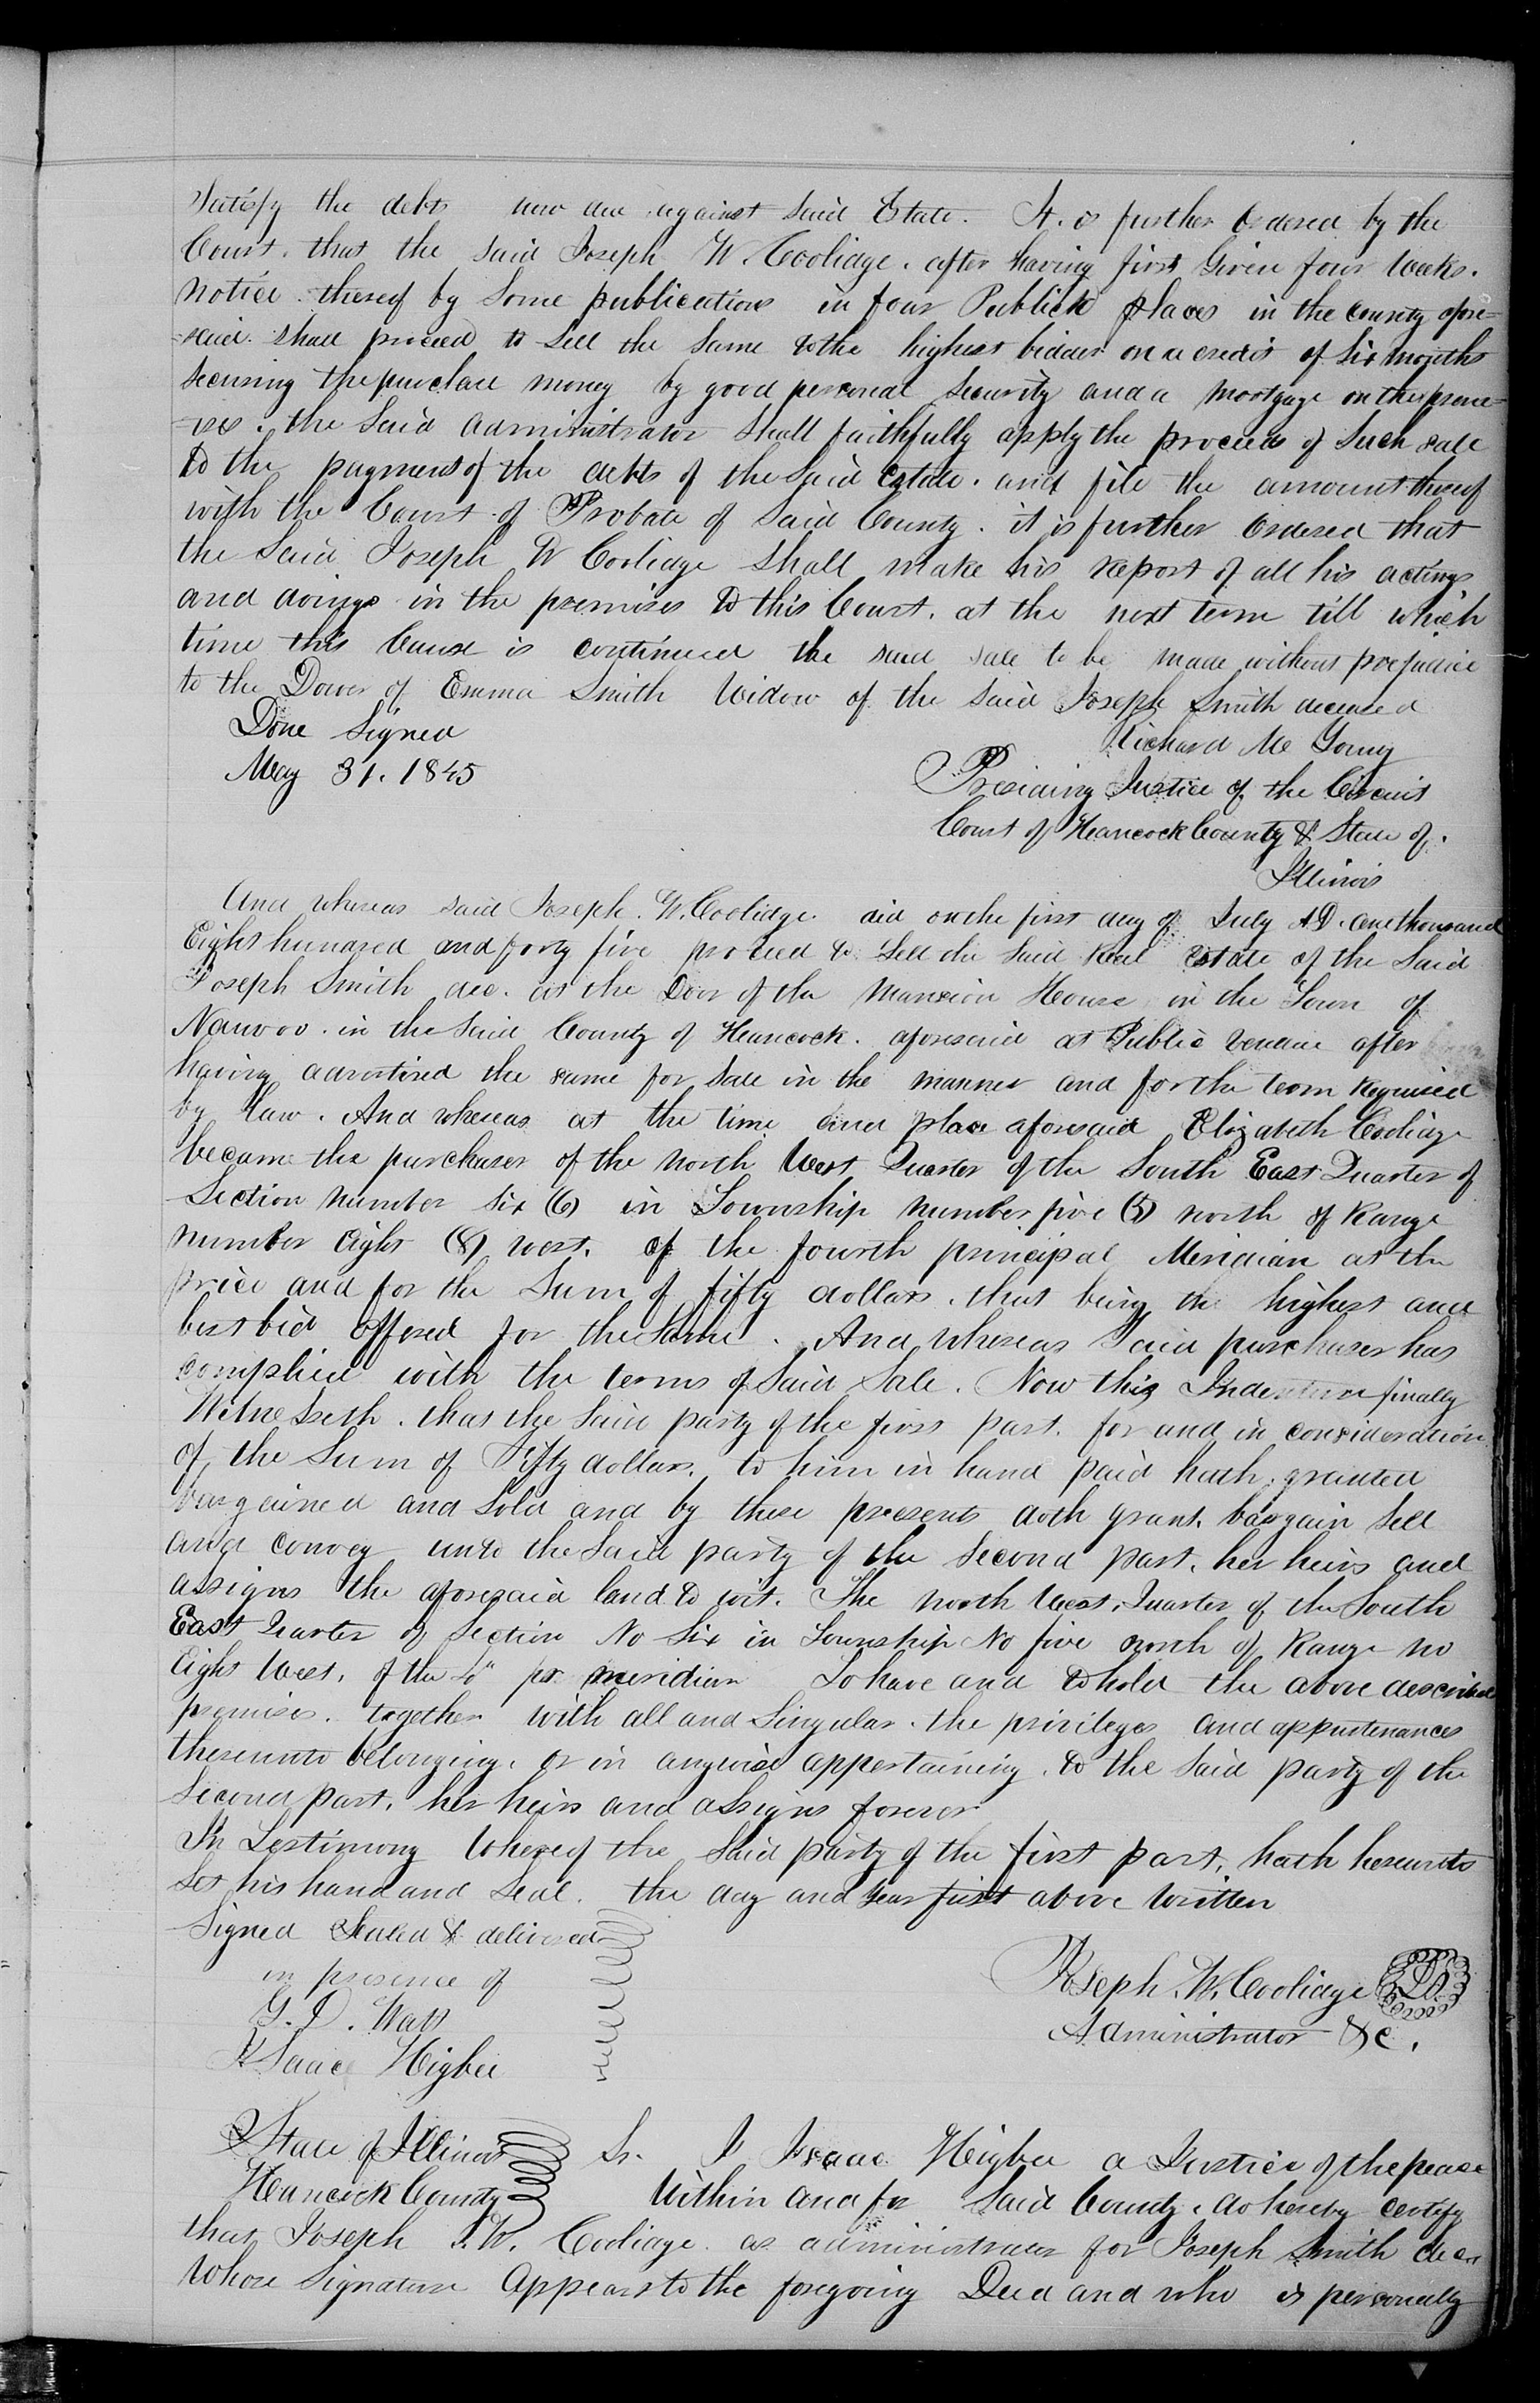 Satisfy the debts now due against said Estate. It is further Ordered by the
Court. that the said Joseph W. Coolidge. after having first Given four Weeks.
notice thereof by Some publications in four Publick places in the county afore=
=said shall proceed to sell the Same to the highest bidder on a credit of Six months
Securing the purchase money by good personal Security and a Mortgage on the prem=
=ises. the Said administrator Shall faithfully apply the proceeds of Such sale
to the payment of the debts of the said Estate. and file the amount thereof
with the Court of Probate of Said County. it is further Ordered that
the Said Joseph W Coolidge Shall make his report of all his actings
and doings in the premises to this Court. at the next term till which
time this Cause is continued the said sale to be made without prejudice
to the Dower of Emma Smith Widow of the Said Joseph Smith deceased
Done Signed
Richard M Young
May 31. 1845
Presiding Justice of the Circuit
Court of Hancock County & State of.
Illinois
And whereas said Joseph. W. Coolidge did on the first day of July A.D. one thousand
Eight hundred and forty five proceed to Sell the said Real Estate of the Said
Joseph Smith dec. at the Door of the Mansion House in the Town of
Nauvoo. in the Said County of Hancock. aforesaid at Public Vendue after
having advertised the same for Sale in the manner and for the term required
by Law. And whereas at the time and place aforesaid Elizabeth Coolidge
became the purchaser of the North West Quarter of the South East Quarter of
Section Number Six (6) in Township number five (5) north of Range
number Eight (8) west. of the fourth principal Meridian at the
price and for the Sum of fifty dollars. that being the highest and
best bid offered for the Same. And whereas Said purchaser has
complied with the terms of Said Sale. Now this Indenture finally
Witnesseth. that the Said party of the first part. for and in consideration
of the Sum of Fifty dollars. to him in hand paid hath granted
bargained and Sold and by these presents doth grant, bargain Sell
and convey unto the Said party of the Second part, her heirs and
assigns the aforesaid land to wit. The North West. Quarter of the South
East Quarter of Section No Six in Township No five north of Range no
Eight West, of the 4" pr meridian To have and to hold the above described
premises. together with all and Singular the privileges and appurtenances
thereunto belonging. or in anywise appertaining. to the Said party of the
Second part. her heirs and assigns forever
In Testimony Whereof the Said party of the first part, hath hereunto
Set his hand and Seal. the day and year first above written
Signed Sealed & delivered
in presence of
Joseph. W. Coolidge
G. D. Watt
Administrator &c.
Isaac Higbee
State of Illinois Ss. I Isaac Higbee a Justice of the peace
Hancock County Within and for Said County. do hereby certify
that Joseph J. W. Coolidge as administrator for Joseph Smith
Whose Signature Appears to the foregoing Deed and who is personally